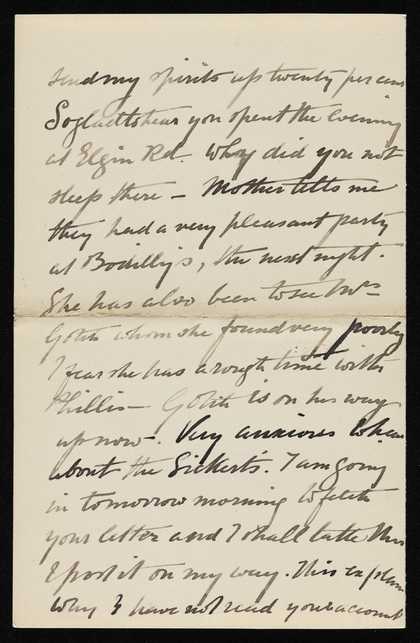 send my spirits up twenty per cent
So glad to hear you spent the evening
at Elgin Rd. Why did you not
sleep there – Mother tells me
they had a very pleasant party
at Bodilly's, the next night.
She has also been to see Mrs
Gotch whom she found very poorly
I fear she has a rough time with
Phillis – Gotch is on his way
up now –. Very anxious to hear
about the Sickerts. I am going
in tomorrow morning to fetch
your letter and I shall take this
& post it on my way. This explains
why I have not read your account